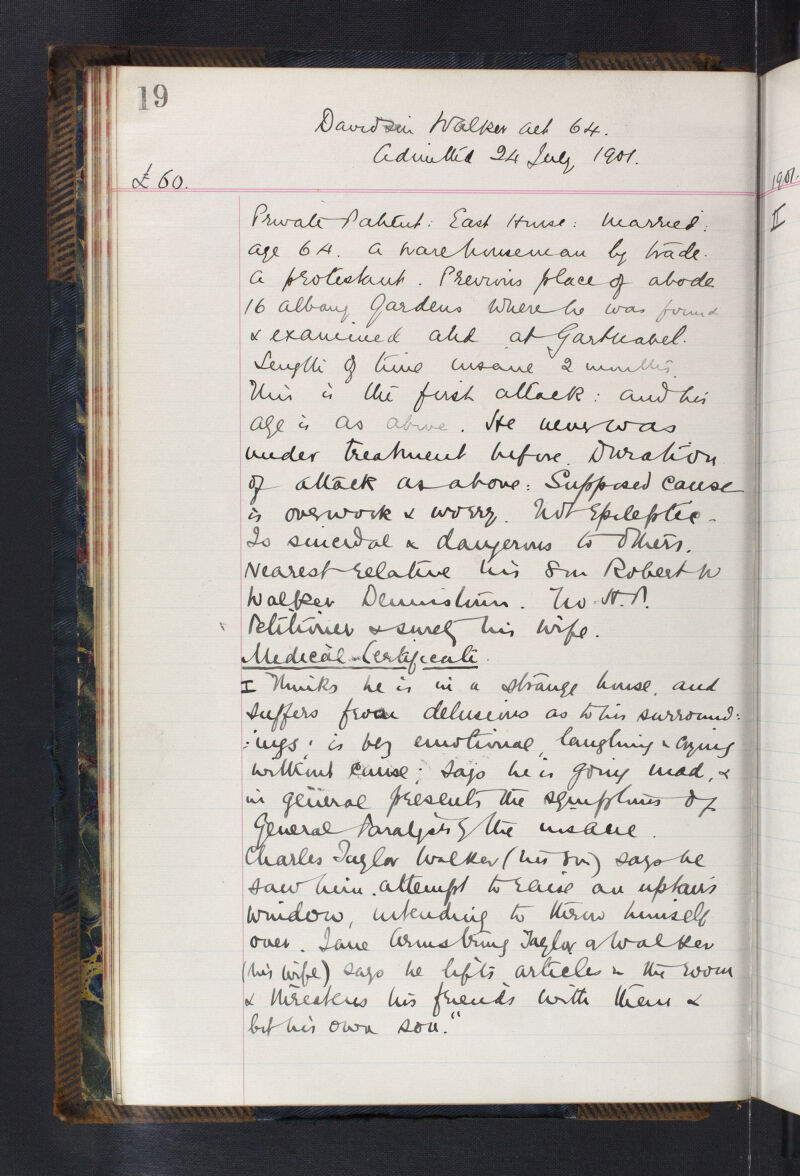 19
Davidson Walker aet 64.
Admitted 24 July 1901.
£60.
1901.
II
Private Patient: East House: Married:
age 64. a warehouseman by trade.
a protestant. Previous place of abode
16 Albany Gardens where he was found
& examined and at Gartnavel.
Length of time insane 2 months.
This is the first attack: and his
age is as above. He never was
under treatment before. Duration
of attack as above: Supposed cause
is overwork & worry. Not Epileptic.
Is suicidal & dangerous to others.
Nearest relative his son Robert W
Walker Dennistoun. No H.P.
Petitioner & surety his wife.
Medical Certificate.
I Thinks he is in a strange house, and
suffers from delusions as to his surround:
:ings: is very emotional, laughing & crying
without cause; says he is going mad, &
in general presents the symptoms of
General Paralysis of the insane.
Charles Taylor Walker (his son) says he
saw him attempt to raise an upstairs
window, intending to throw himself
over. Jane Armstrong Taylor or Walker
(his wife) says he lifts articles in the room
& threatens his friends with them &
bit his own son."